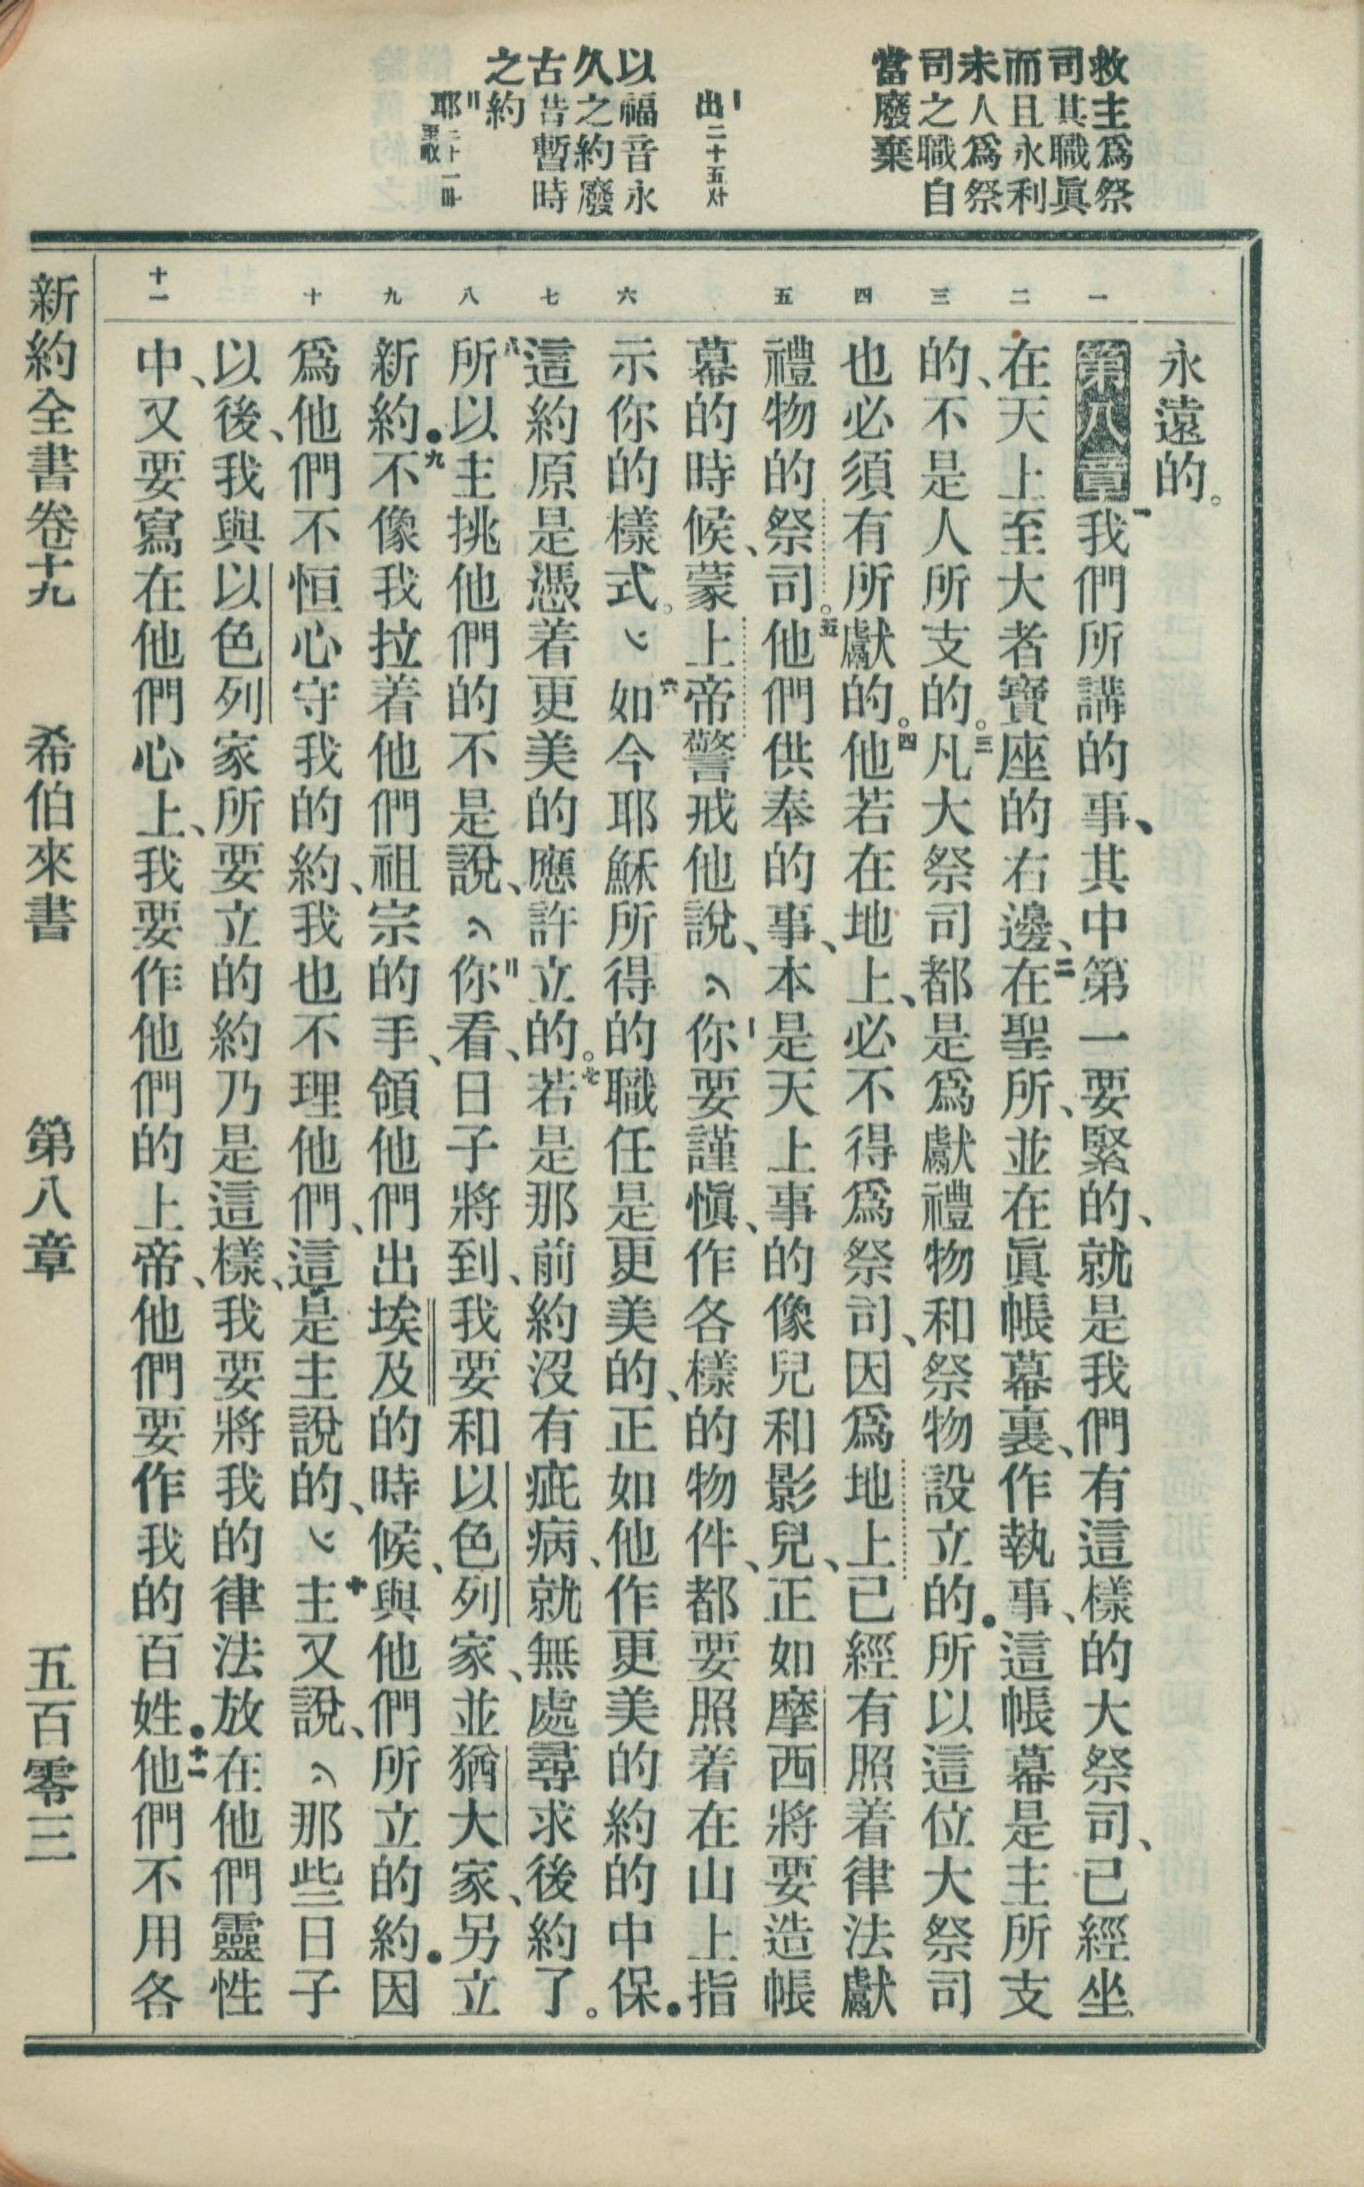 救主爲祭
司其職眞
而且永利
未人爲祭
司之職自
當廢棄
出二十五
以福音永
久之約廢
古昔暫時
之約
耶三十一
一
二
三
四
五
六
七
八
九
十
十一
永遠的。
第八章一我們所講的事、其中第一要緊的、就是我們有這樣的大祭司、已經坐
在天上至大者寶座的右邊、二在聖所、並在眞帳幕裏、作執事、這帳幕是主所支
的、不是人所支的。三凡大祭司都是爲獻禮物和祭物設立的．所以這位大祭司
也必須有所獻的。四他若在地上、必不得爲祭司、因爲地上已經有照着律法獻
禮物的祭司。五他們供奉的事、本是天上事的像兒和影兒、正如摩西將要造帳
幕的時候、蒙上帝警戒他說、你要謹愼、作各樣的物件、都要照着在山上指
示你的樣式。六如今耶穌所得的職任是更美的、正如他作更美的約的中保．
這約原是憑着更美的應許立的。七若是那前約沒有疵病、就無處尋求後約了。
八所以主挑他們的不是說、你看、日子將到、我要和以色列家、並猶大家、另立
新約．九不像我拉着他們祖宗的手、領他們出埃及的時候、與他們所立的約．因
爲他們不恒心守我的約、我也不理他們、這是主說的、十主又說、那些日子
以後、我與以色列家所要立的約乃是這樣、我要將我的律法放在他們靈性
中、又要寫在他們心上、我要作他們的上帝、他們要作我的百姓．十一他們不用各
新約全書卷十九 希伯來書 第八章 五百零三